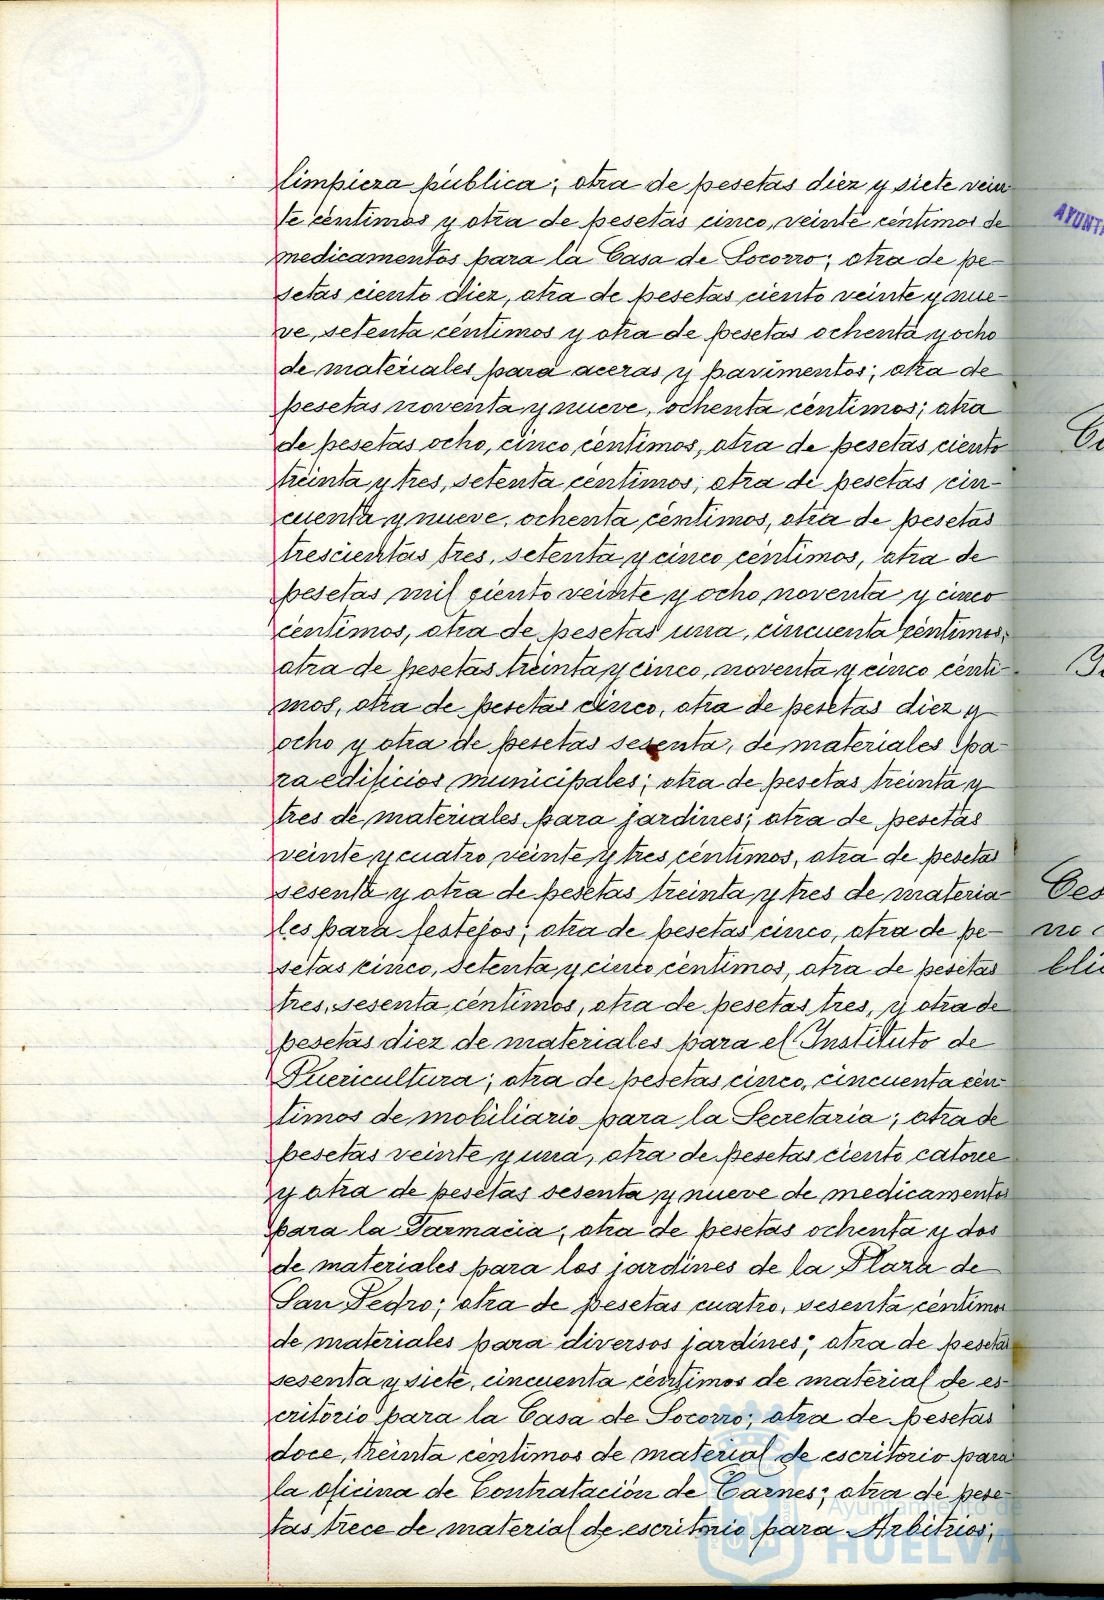 limpieza pública; otra de pesetas diez y siete vein-
te céntimos y otra de pesetas cinco, veinte céntimos de
medicamentos para la Casa de Socorro; otra de pe-
setas ciento diez, otra de pesetas ciento veinte y nue-
ve, setenta céntimos y otra de pesetas ochenta y ocho
de materiales para aceras y pavimentos; otra de
pesetas noventa y nueve, ochenta céntimos; otra
de pesetas ocho, cinco céntimos, otra de pesetas ciento
treinta y tres, setenta céntimos; otra de pesetas cin-
cuenta y nueve, ochenta céntimos, otra de pesetas
trescientas tres, setenta y cinco céntimos, otra de
pesetas mil ciento veinte y ocho, noventa y cinco
céntimos, otra de pesetas una, cincuenta céntimos,
otra de pesetas treinta y cinco, noventa y cinco cénti-
mos, otra de pesetas cinco, otra de pesetas diez y
ocho y otra de pesetas sesenta, de materiales pa-
ra edificios municipales; otra de pesetas treinta y
tres de materiales para jardines; otra de pesetas
veinte y cuatro, veinte y tres céntimos, otra de pesetas
sesenta y otra de pesetas treinta y tres de materia-
les para festejos; otra de pesetas cinco, otra de pe-
setas cinco, setenta y cinco céntimos, otra de pesetas
tres, sesenta céntimos, otra de pesetas tres, y otra de
pesetas diez de materiales para el Instituto de
Puericultura; otra de pesetas cinco, cincuenta cén-
timos de mobiliario para la Secretaria; otra de
pesetas veinte y una, otra de pesetas ciento catorce
y otra de pesetas sesenta y nueve de medicamentos
para la Farmacia; otra de pesetas ochenta y dos
de materiales para los jardines de la Plaza de
San Pedro; otra de pesetas cuatro, sesenta céntimos
de materiales para diversos jardines; otra de pesetas
sesenta y siete, cincuenta céntimos de material de es-
critorio para la Casa de Socorro; otra de pesetas
doce, treinta céntimos de material de escritorio para
la oficina de Contratación de Carnes; otra de pese-
tas trece de material de escritorio para Arbitrios;
Ayuntamiento de
HUELVA